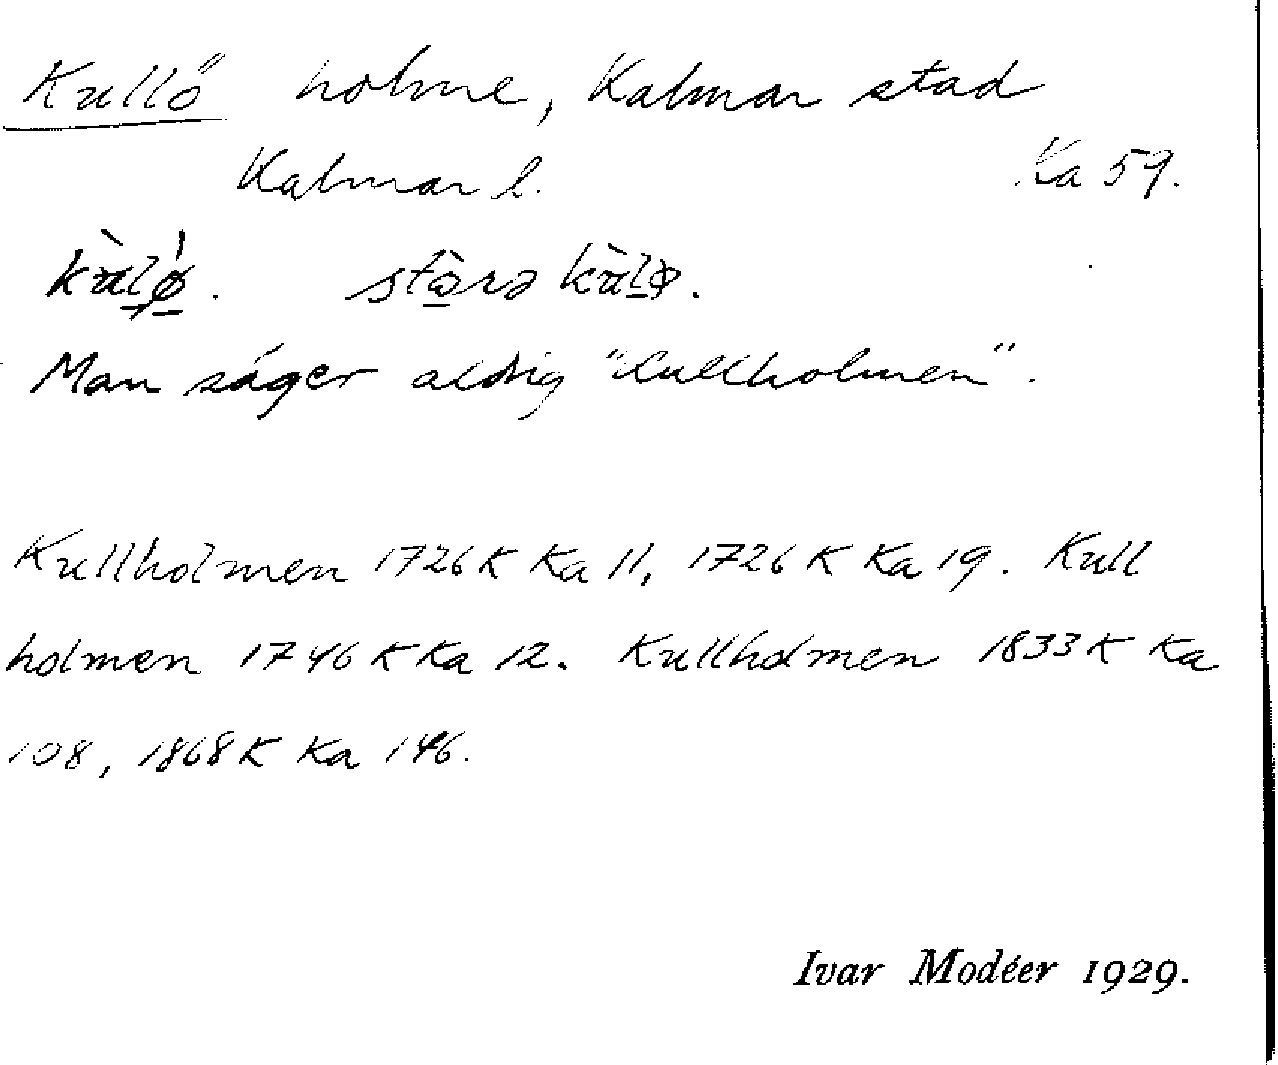 Kullö holme, Kalmar stad
Kalmar l. Ka 59.
kùlǿ. stòrə kùlø.
Man säger aldrig "Kullholmen".
Kullholmen 1726 K Ka 11, 1726 K Ka 19. Kull
holmen 1746 K Ka 12. Kullholmen 1833 K Ka
108, 1868 K Ka 146.
Ivar Modéer 1929.